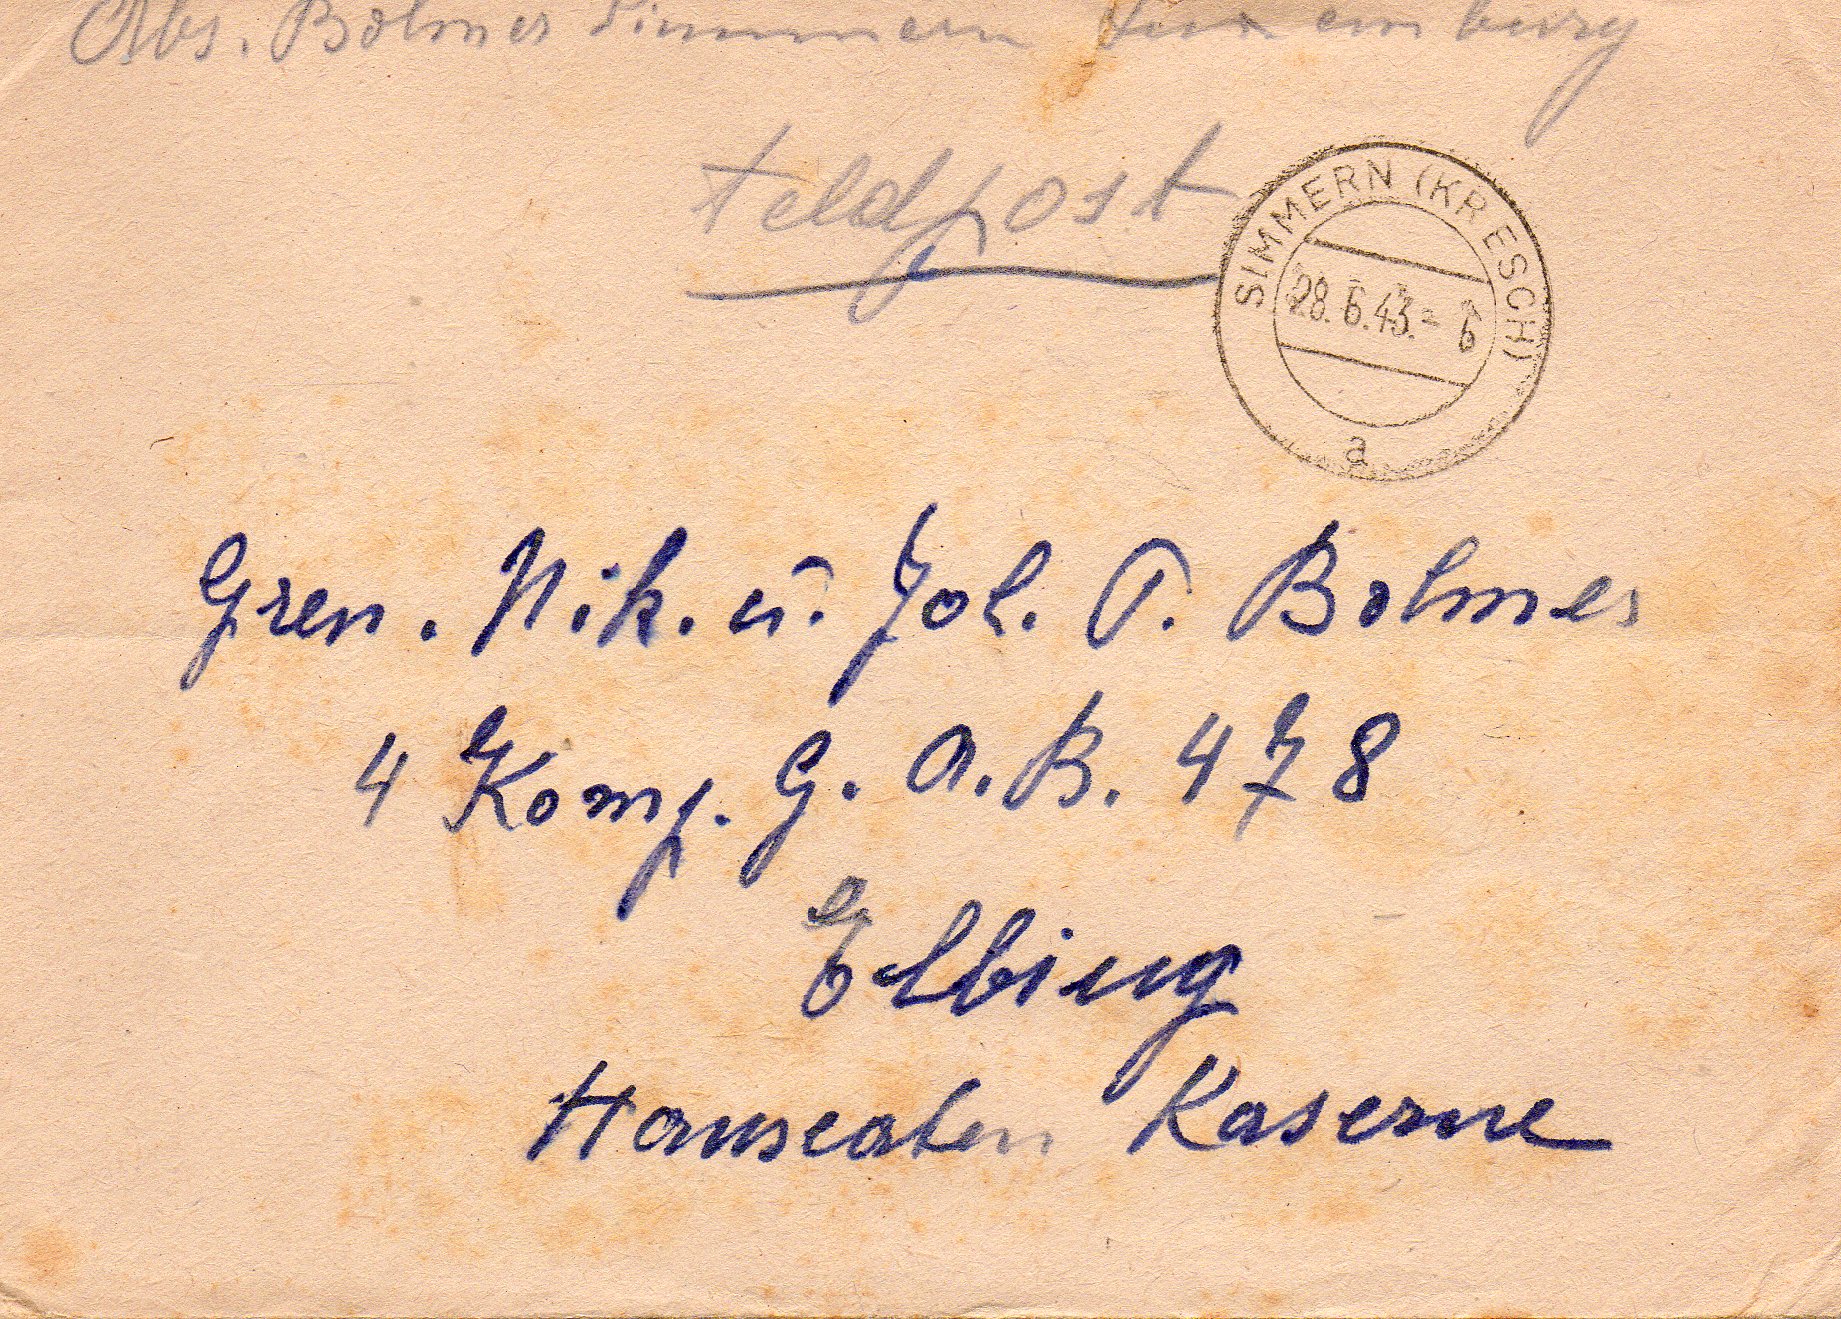 Abs. Bolmer Simmern Luxemburg
Feldpost
SIMMERN (KR ESCH)
28.6.43.- 6
a
Gren. Nik. u. Joh. P. Bolmer
4 Komp. G. A. B. 478
Elbing
Hanseaten Kaserne